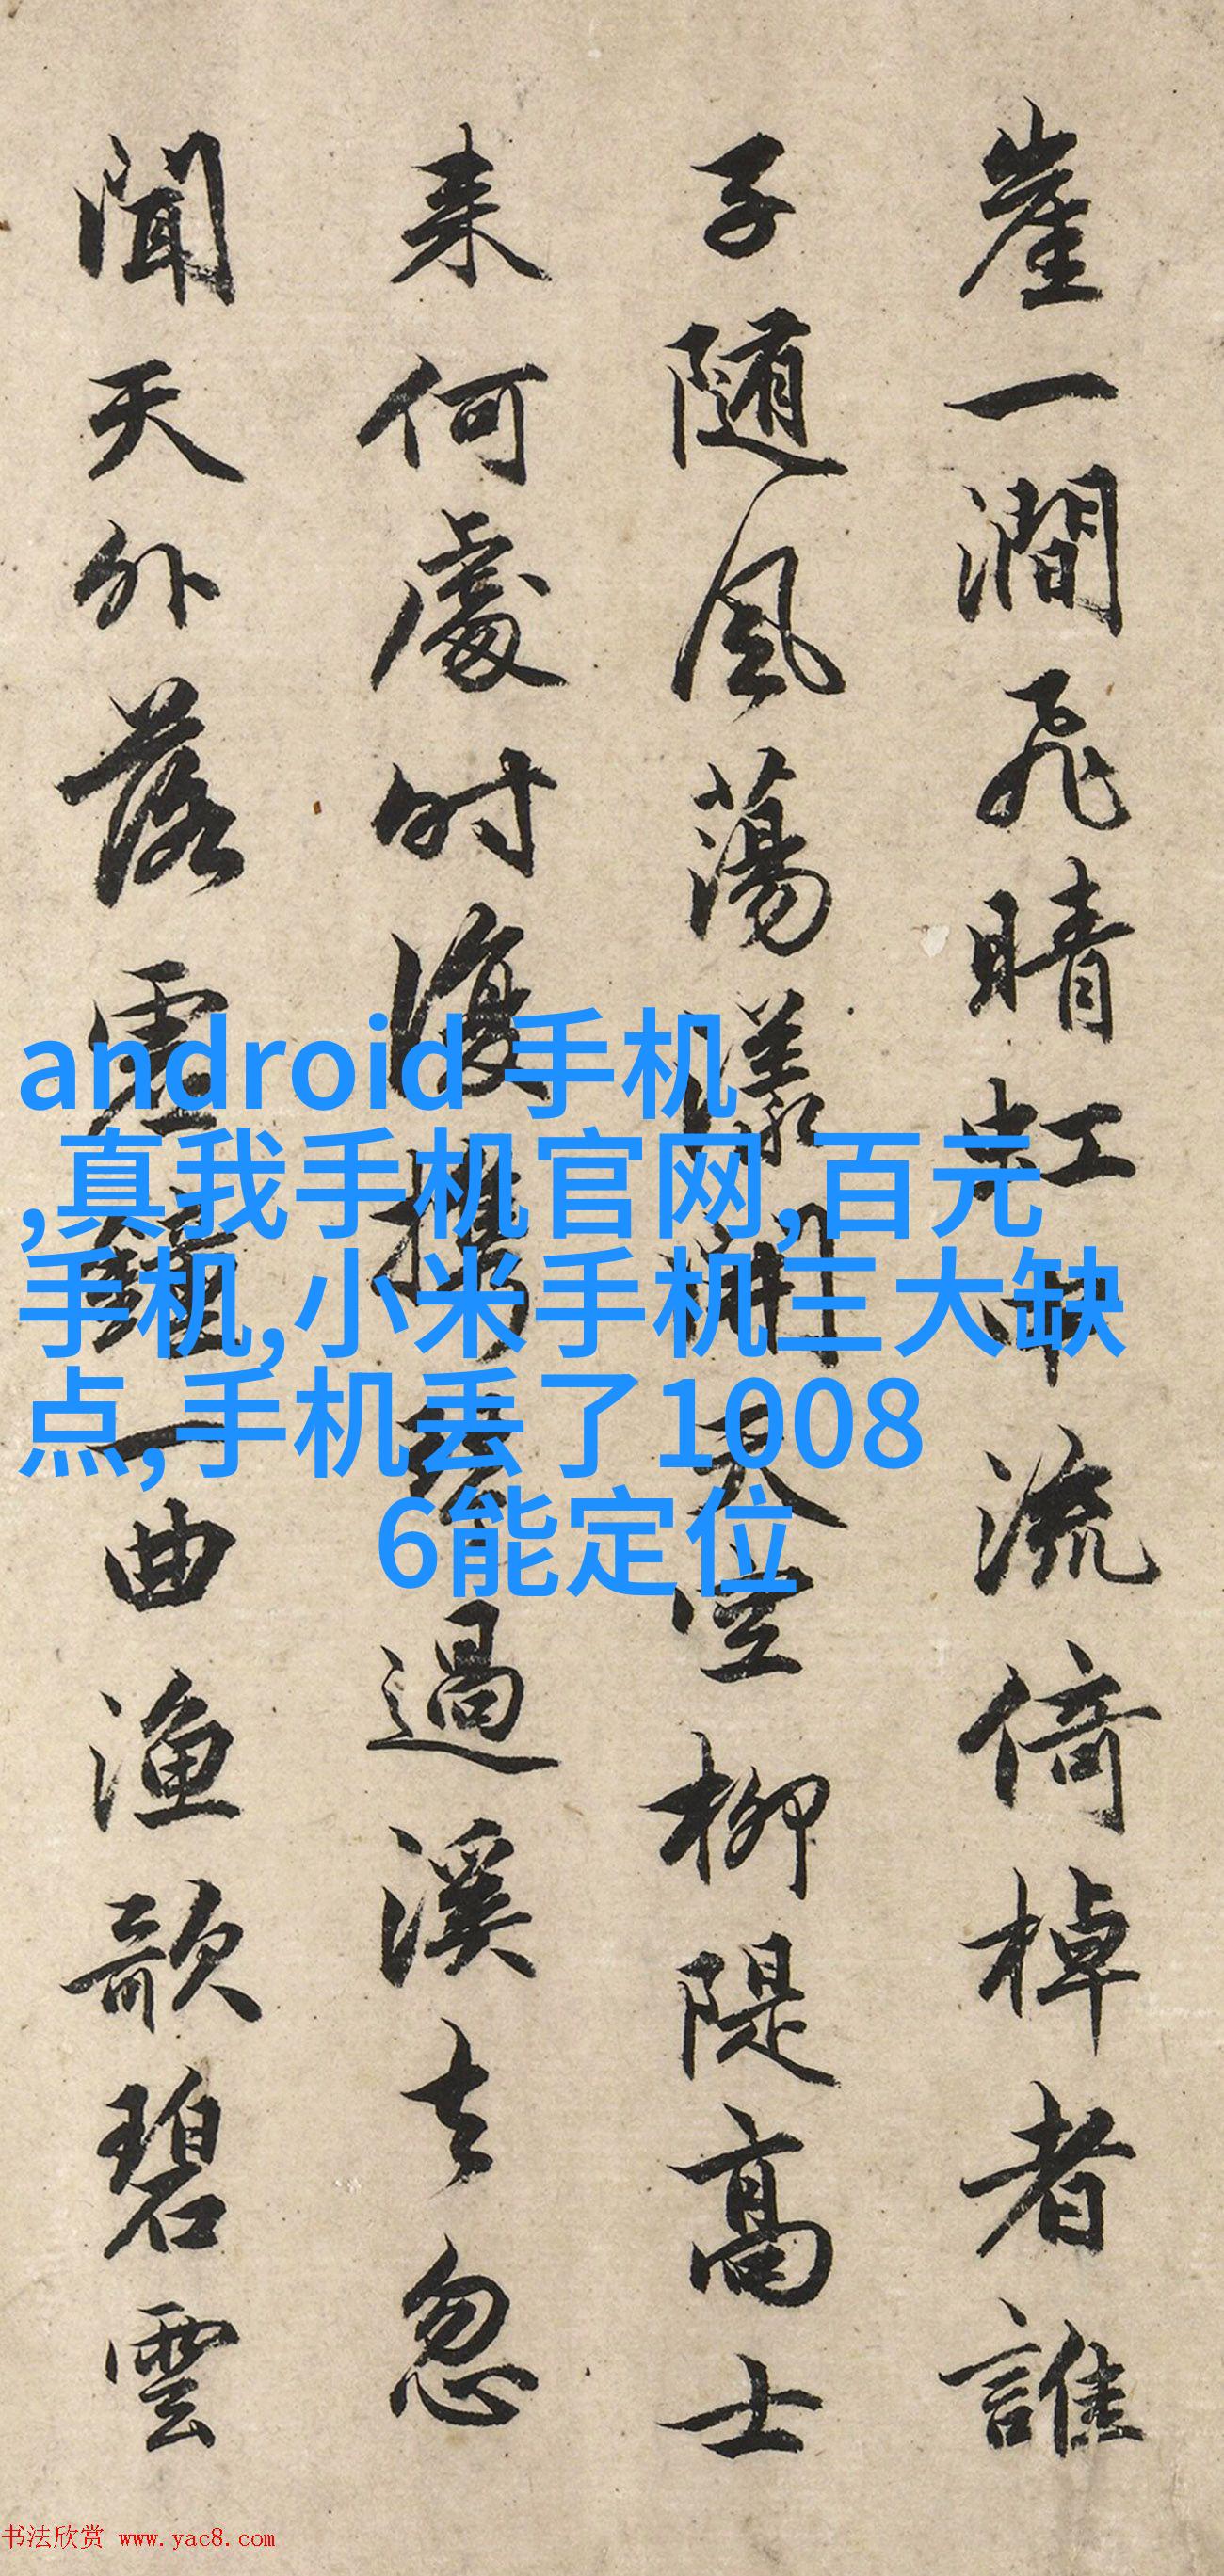 崖一澗飛晴虹中流倚棹者誰
子随風蕩漾開天空柳隄高士
来何處時復携琴過溪去忽
聞天外落鐘一曲漁歌碧雲
android 手机
,真我手机官网,百元
手机,小米手机三大缺
点,手机丢了1008
6能定位
书法欣赏 www.yac8.com